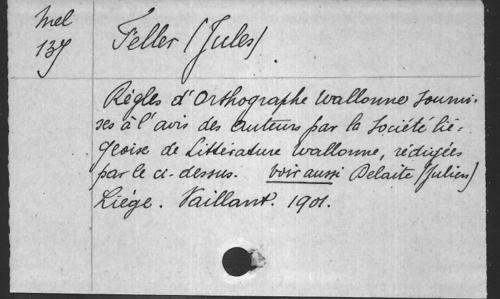 Mel
137
Feller (Jules)
Règles d'Orthographe wallonne soumi-
ses à l'avis des auteurs par la Société lié-
geoise de Littérature wallonne, rédigées
par le ci-dessus. voir aussi Delaite (Julien)
Liége. Vaillant. 1901.